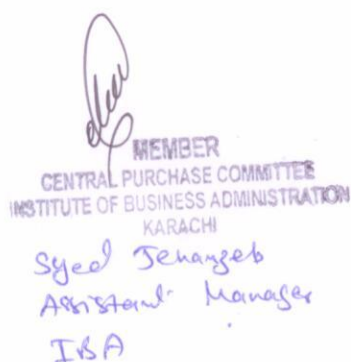 MEMBER
CENTRAL PURCHASE COMMITTEE
INSTITUTE OF BUSINESS ADMINISTRATION
KARACHI
Syed Jehanzeb
Assistant Manager
IBA